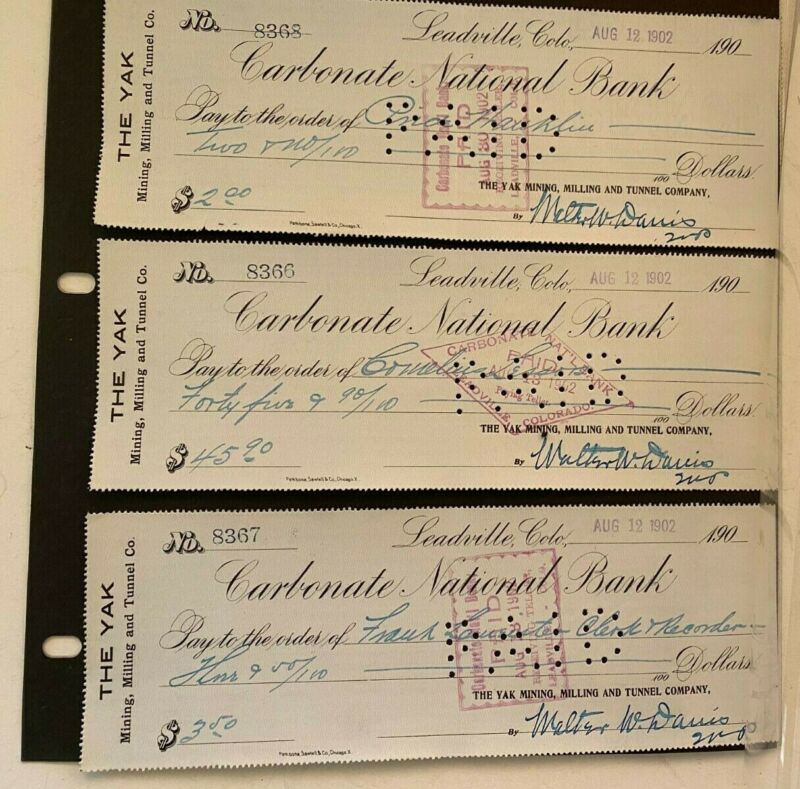 THE YAK
Mining, Milling and Tunnel Co.
No. 8368
Leadville, Colo., AUG 12 1902 190
Carbonate National Bank
Pay to the order of
Two & no/100 Dollars
$ 2.00
THE YAK MINING, MILLING AND TUNNEL COMPANY,
By Walter W. Davis
PAID
AUG 30 1902
LEADVILLE,
THE YAK
Mining, Milling and Tunnel Co.
No. 8366
Leadville, Colo., AUG 12 1902 190
Carbonate National Bank
Pay to the order of
Forty five & 90/100 Dollars
$ 45 90
THE YAK MINING, MILLING AND TUNNEL COMPANY,
By Walter W. Davis
CARBONATE NAT'L BANK
PAID
Paying Teller
LEADVILLE, COLORADO.
THE YAK
Mining, Milling and Tunnel Co.
No. 8367
Leadville, Colo., AUG 12 1902 190
Carbonate National Bank
Pay to the order of Frank Clerk & Recorder
50/100 Dollars
$ 3 50
THE YAK MINING, MILLING AND TUNNEL COMPANY,
By Walter W. Davis
PAID